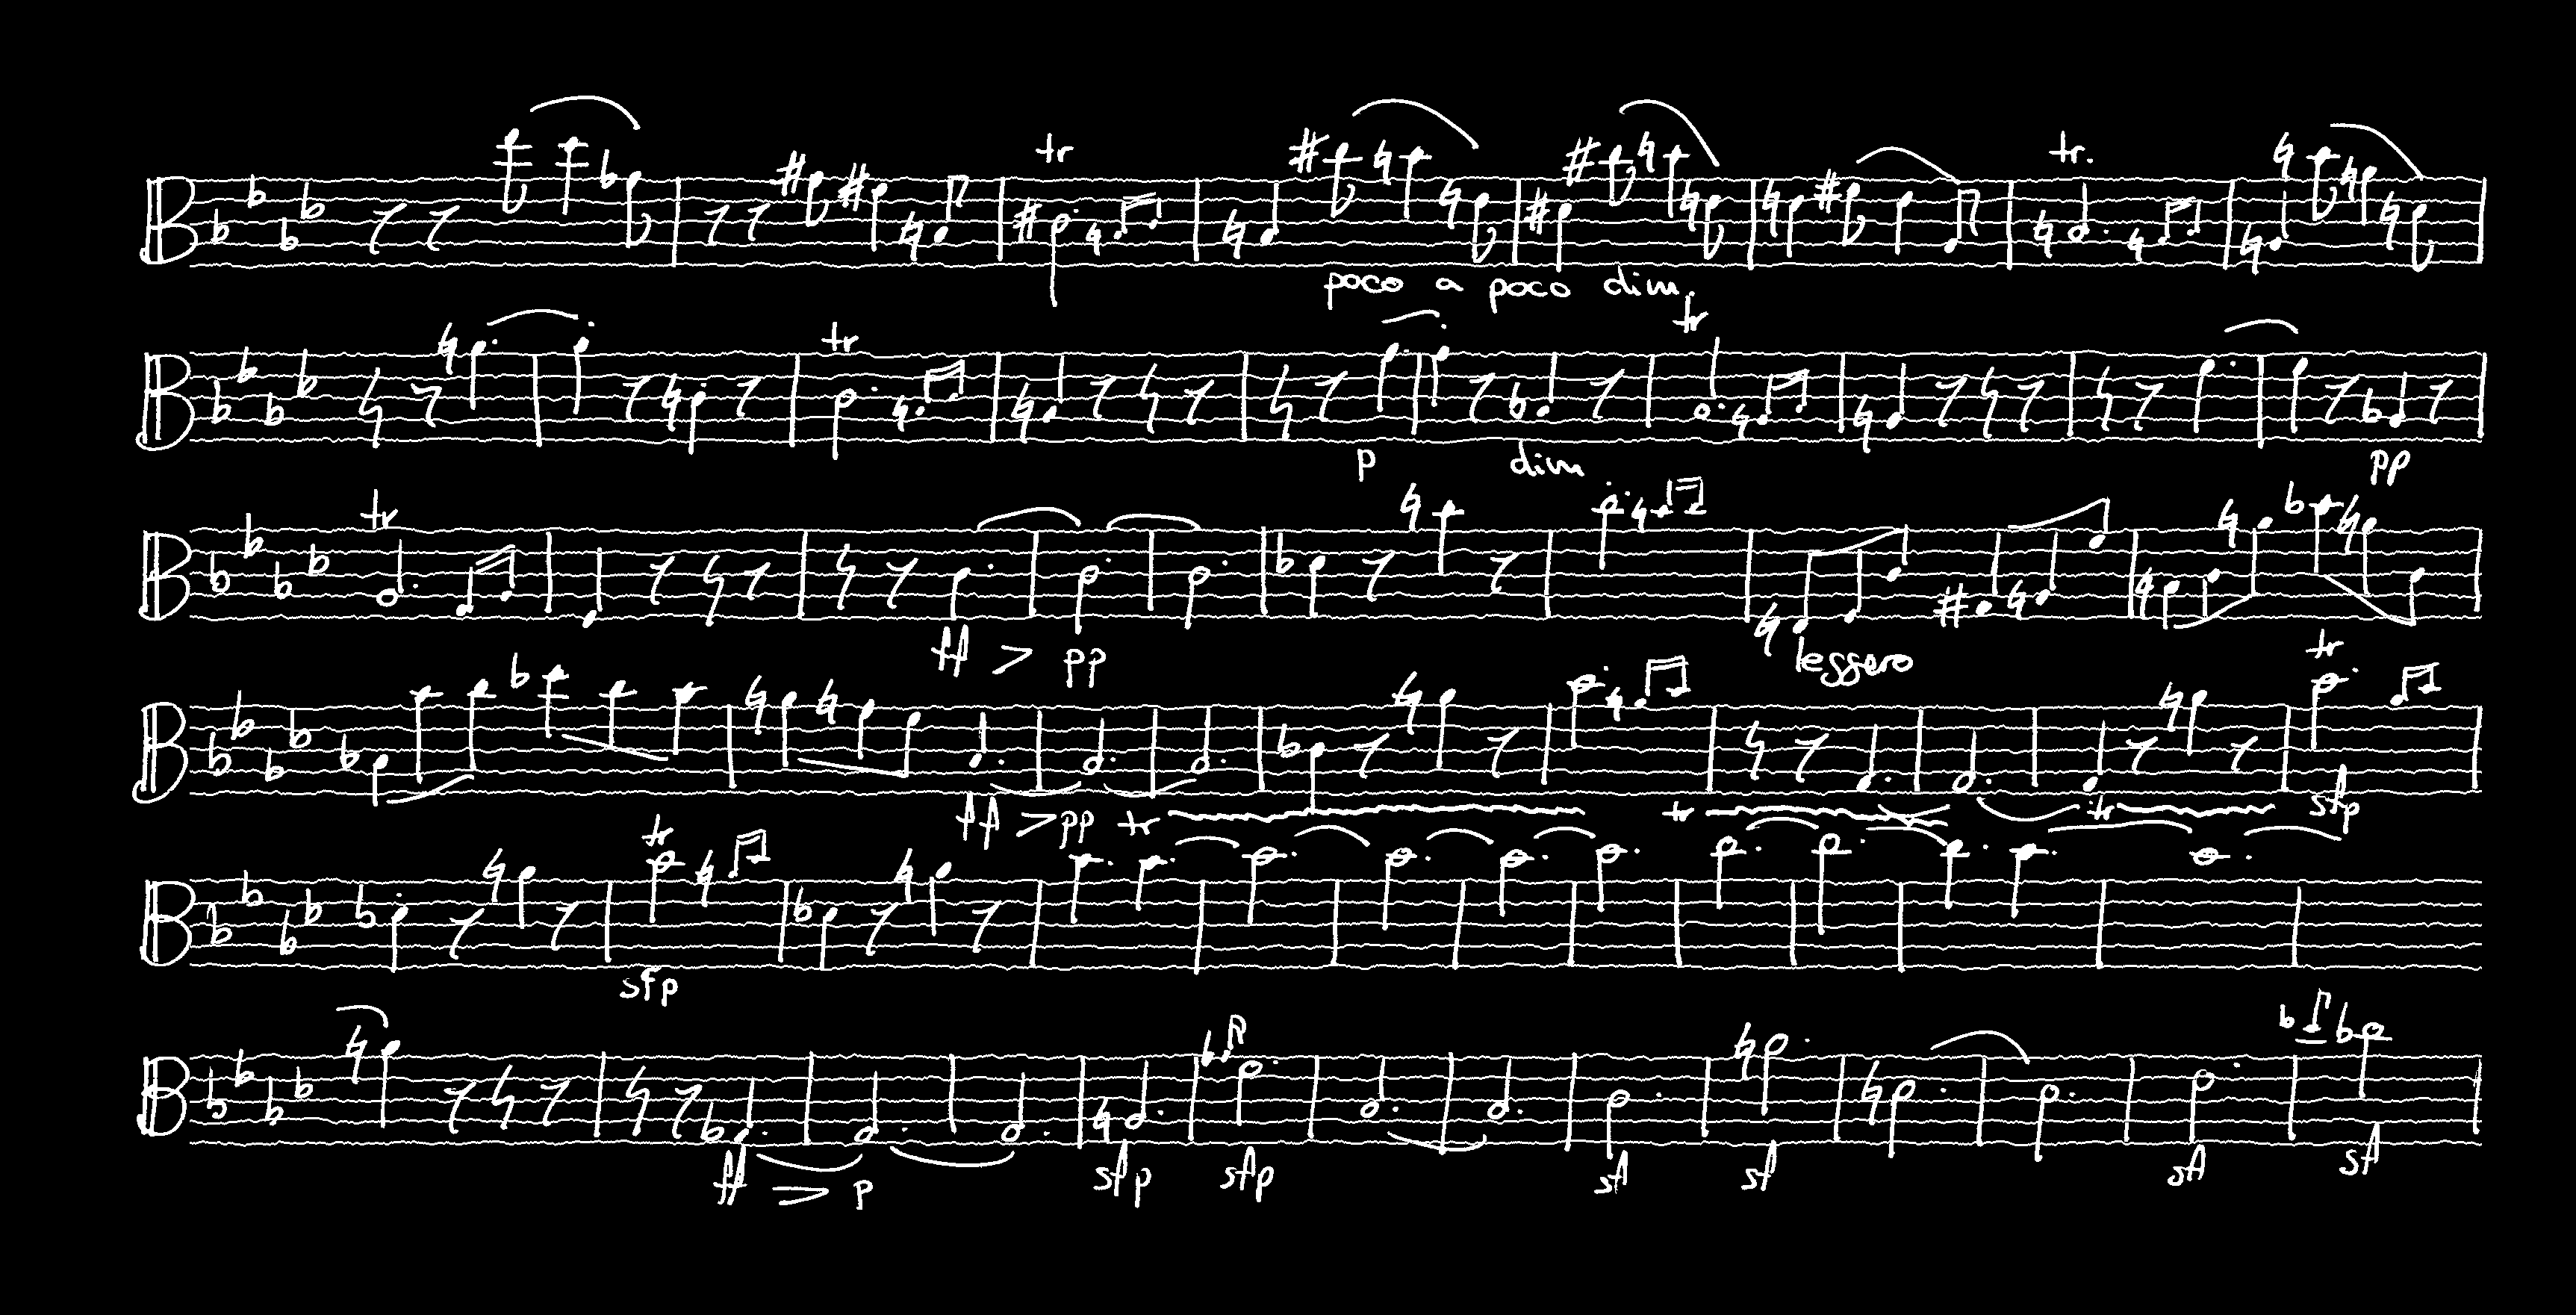 tr tr.
poco a poco dim.
tr tr
p dim pp
tr
ff > pp leggero
tr
ff > pp tr tr tr sfp
tr
sfp
ff > p sfp sfp sf sf sf sf